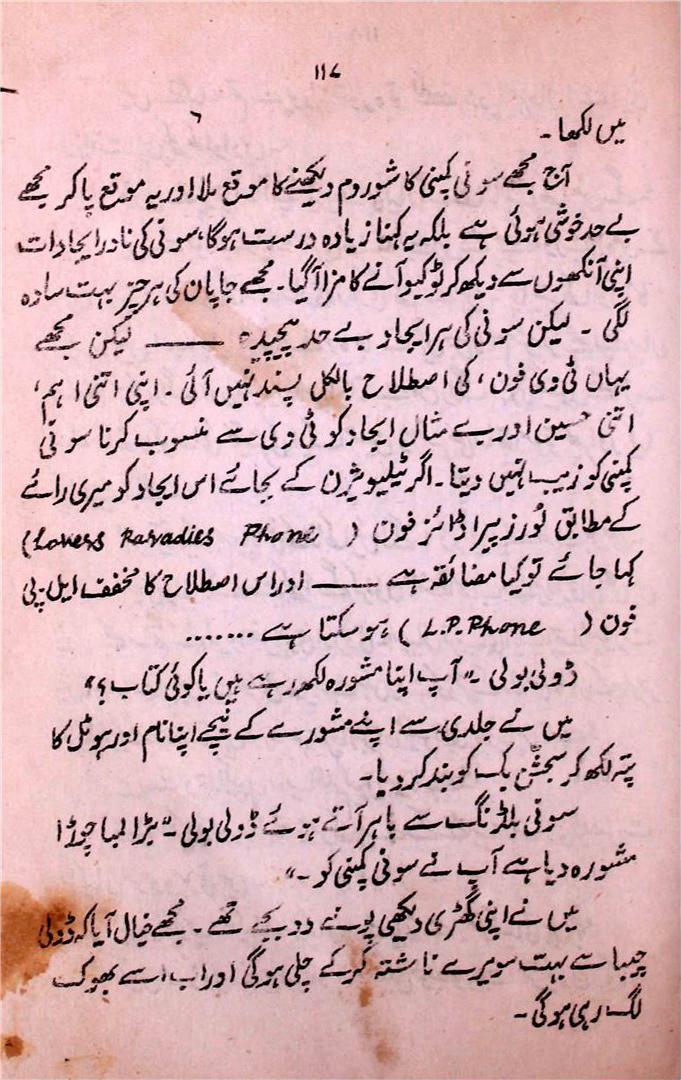 ۱۱۷
میں لکھا۔
آج مجھے سونی کمپنی کا شوروم دیکھنے کا موقع ملا اور یہ موقع پا کر مجھے
بے حد خوشی ہوئی ہے بلکہ یہ کہنا زیادہ درست ہوگا، سونی کی نادر ایجادات
اپنی آنکھوں سے دیکھ کر ٹوکیو آنے کا مزا آگیا۔ مجھے جاپان کی ہر چیز بہت سادہ
لگی ۔ لیکن سونی کی ہر ایجاد بے حد پیچیدہ ——— لیکن مجھے
یہاں ٹی وی فون، کی اصطلاح بالکل پسند نہیں آئی ۔ اپنی اتنی اہم،
اتنی حسین اور بے مثال ایجاد کو ٹی وی سے منسوب کرنا سونی
کمپنی کو زیب نہیں دیتا ۔ اگر ٹیلیویژن کے بجائے اس ایجاد کو میری رائے
کے مطابق لورز پیراڈائز فون ( Lovers Paradies Phone )
کہا جائے تو کیا مضائقہ ہے ——— اور اس اصطلاح کا مخفف ایل پی
فون ( L.P. Phone ) ہو سکتا ہے .......
ڈولی بولی ۔ "آپ اپنا مشورہ لکھ رہے ہیں یا کوئی کتاب؟"
میں نے جلدی سے اپنے مشورے کے نیچے اپنا نام اور ہوٹل کا
پتہ لکھ کر سجشن بک کو بند کر دیا۔
سونی بلڈنگ سے باہر آتے ہوئے ڈولی بولی ۔ "بڑا لمبا چوڑا
مشورہ دیا ہے آپ نے سونی کمپنی کو ۔"
میں نے اپنی گھڑی دیکھی پونے دو بجے تھے ۔ مجھے خیال آیا کہ ڈولی
چیبا سے بہت سویرے ناشتہ کر کے چلی ہوگی اور اب اسے بھوک
لگ رہی ہوگی ۔